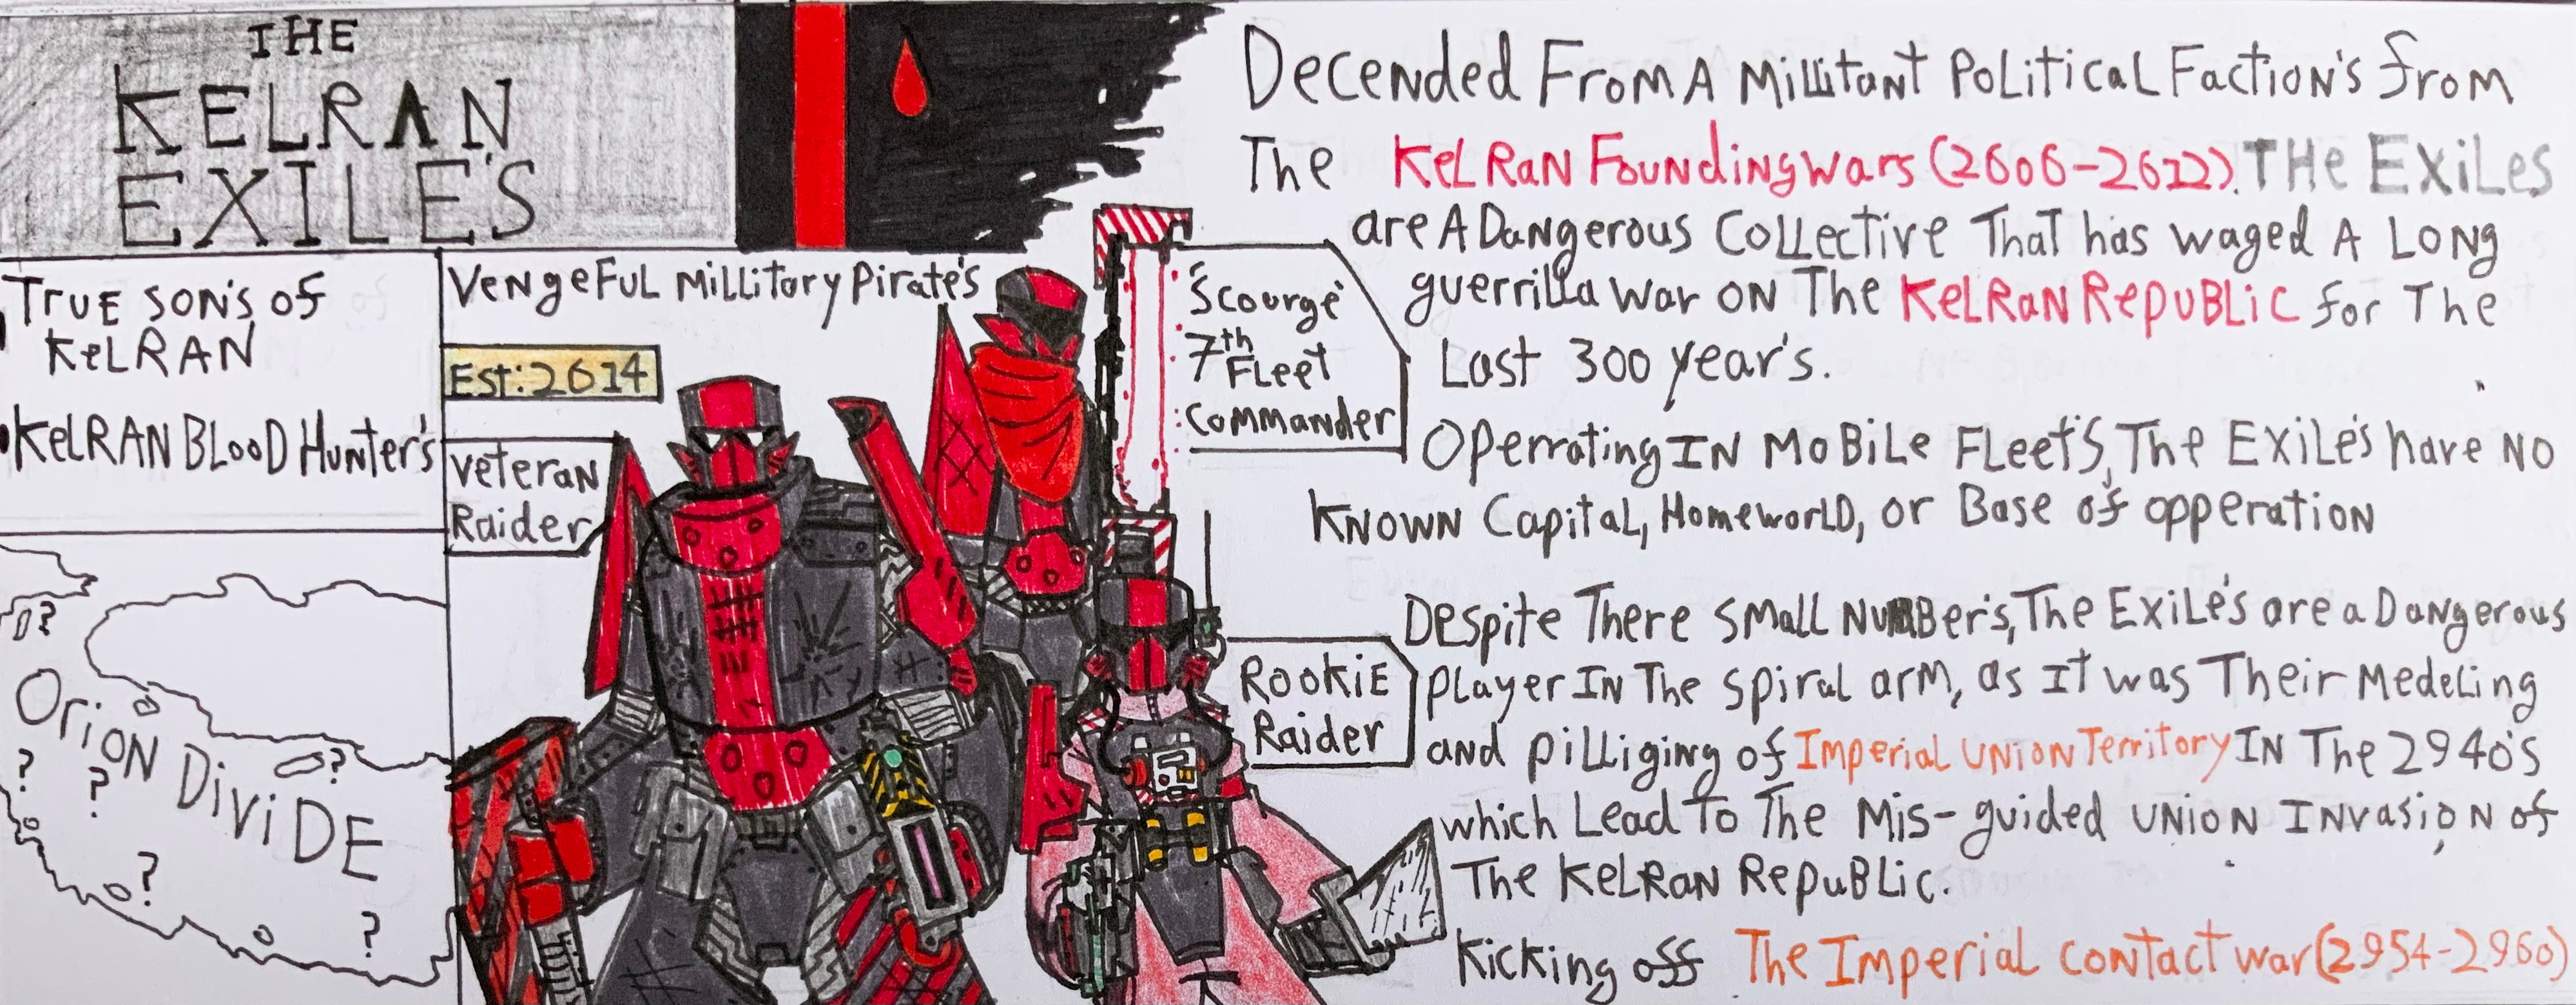 THE
KELRAN
EXILE'S
TRUE SON'S OF
KELRAN
KELRAN BLOOD HUNTER'S
VENGEFUL MILLITORY PIRATE'S
EST: 2614
VETERAN
RAIDER
"SCOURGE"
7th
FLEET
COMMANDER
ROOKIE
RAIDER
?
ORION DIVIDE
?
?
?
?
?
DECENDED FROM A MILLITANT POLITICAL FACTION'S FROM
THE KELRAN FOUNDING WARS (2606-2612). THE EXILES
ARE A DANGEROUS COLLECTIVE THAT HAS WAGED A LONG
GUERRILLA WAR ON THE KELRAN REPUBLIC FOR THE
LAST 300 YEAR'S.
OPERRATING IN MOBILE FLEET'S, THE EXILE'S HAVE NO
KNOWN CAPITAL, HOMEWORLD, OR BASE OF OPPERATION
DESPITE THERE SMALL NUMBER'S, THE EXILE'S ARE A DANGEROUS
PLAYER IN THE SPIRAL ARM, AS IT WAS THEIR MEDELING
AND PILLIGING OF IMPERIAL UNION TERRITORY IN THE 2940'S
WHICH LEAD TO THE MIS-GUIDED UNION INVASION OF
THE KELRAN REPUBLIC.
KICKING OFF THE IMPERIAL CONTACT WAR (2954-2960)